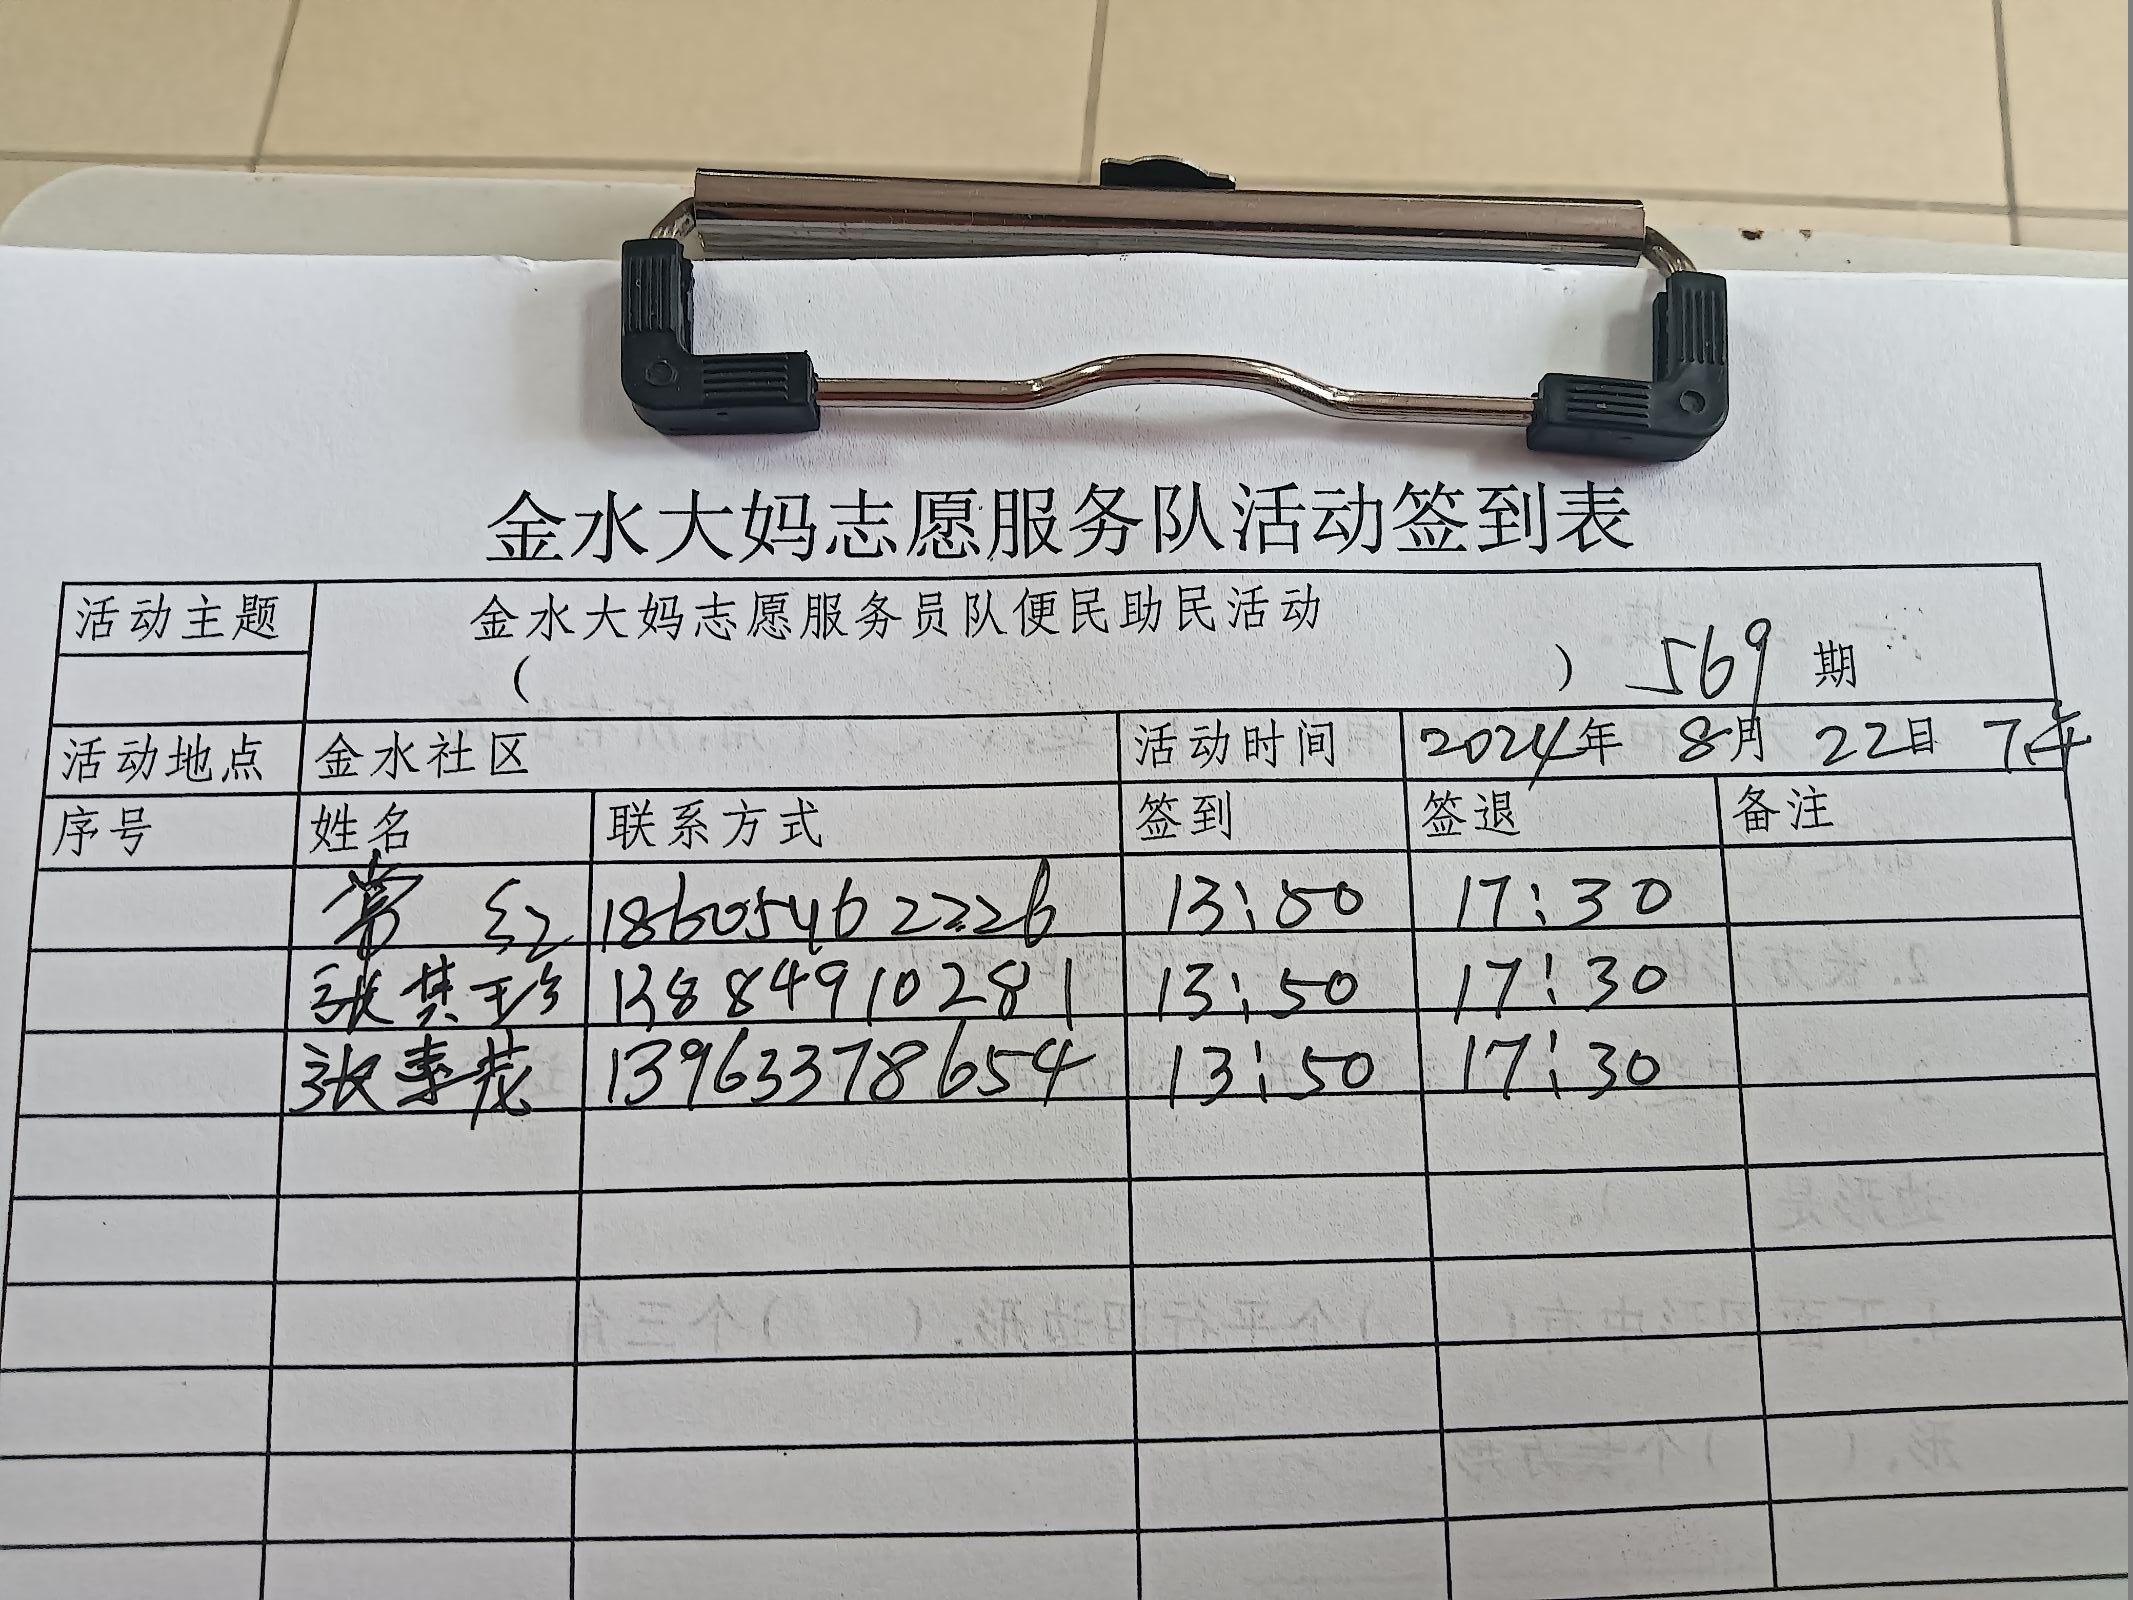 金水大妈志愿服务队活动签到表
活动主题 金水大妈志愿服务员队便民助民活动
( ) 569 期
活动地点 金水社区 活动时间 2024年 8月 22日 下午
序号 姓名 联系方式 签到 签退 备注
常红 18605462226 13:50 17:30
张其珍 13884910281 13:50 17:30
张 13963378654 13:50 17:30